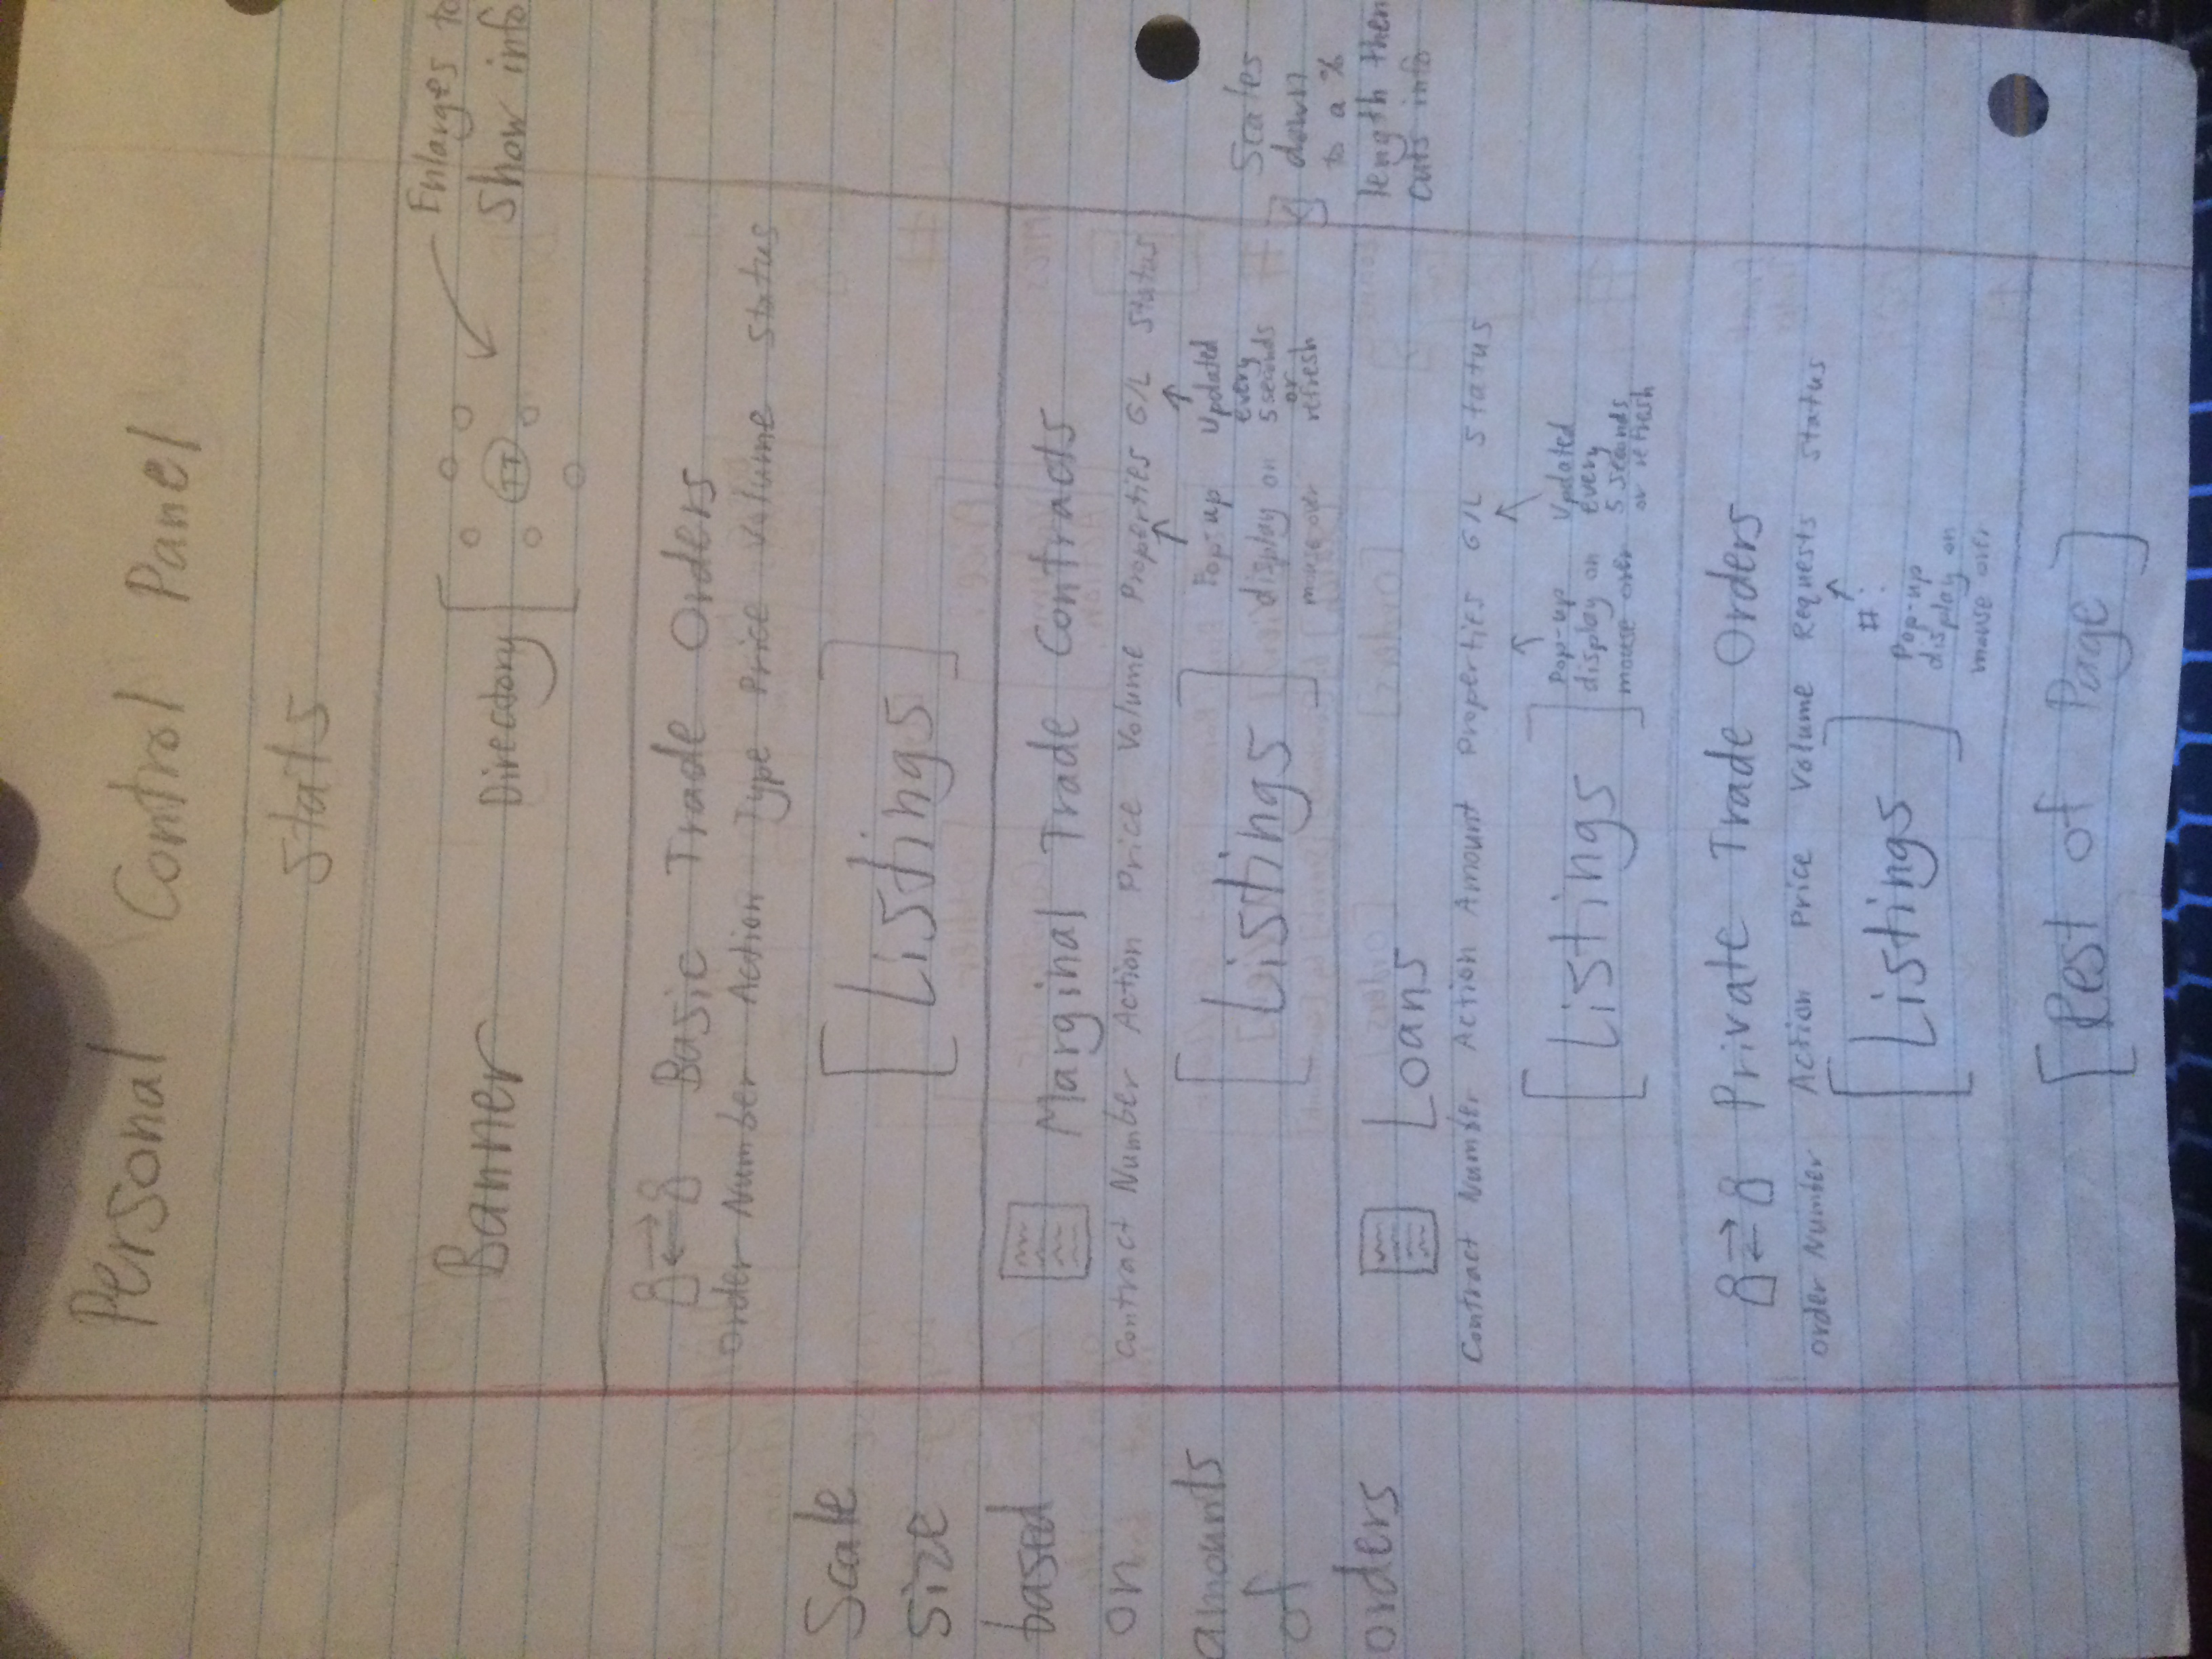 Personal Control Panel
Stats
Banner
Directory
TT
Enlarges to
Show info
Basic Trade Orders
Order Number Action Type Price Volume Status
[Listings]
Scale
size
based
on
amounts
of
orders
Marginal Trade Contracts
Contract Number Action Price Volume Properties G/L Status
[Listings]
Pop-up
display on
mouse over
Updated
every
5 seconds
or
refresh
Scales
down
to a %
length then
cuts info
Loans
Contract Number Action Amount Properties G/L Status
[Listings]
Pop-up
display on
mouse over
Updated
every
5 seconds
or refresh
Private Trade Orders
Order Number Action Price Volume Requests Status
[Listings]
#:
Pop-up
display on
mouse over
[Rest of Page]